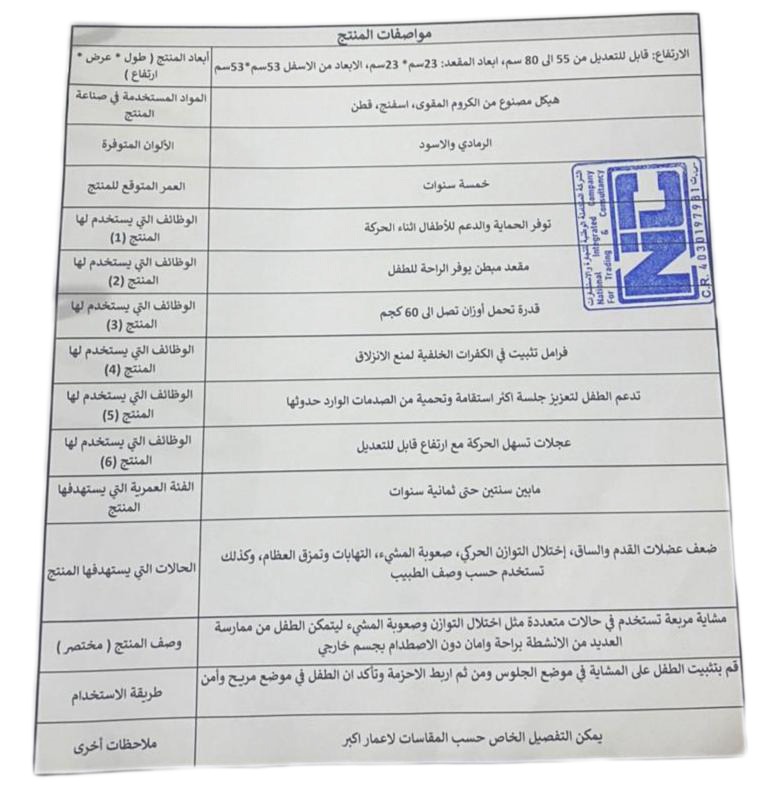 مواصفات المنتج
أبعاد المنتج ( طول * عرض *
ارتفاع )
الارتفاع: قابل للتعديل من 55 الى 80 سم، ابعاد المقعد: 23سم* 23سم، الابعاد من الاسفل 53سم*53سم
المواد المستخدمة في صناعة
المنتج
هيكل مصنوع من الكروم المقوى، اسفنج، قطن
الألوان المتوفرة
الرمادي والاسود
العمر المتوقع للمنتج
خمسة سنوات
الوظائف التي يستخدم لها
المنتج (1)
توفر الحماية والدعم للأطفال اثناء الحركة
الوظائف التي يستخدم لها
المنتج (2)
مقعد مبطن يوفر الراحة للطفل
الوظائف التي يستخدم لها
المنتج (3)
قدرة تحمل أوزان تصل الى 60 كجم
الوظائف التي يستخدم لها
المنتج (4)
فرامل تثبيت في الكفرات الخلفية لمنع الانزلاق
الوظائف التي يستخدم لها
المنتج (5)
تدعم الطفل لتعزيز جلسة اكثر استقامة وتحمية من الصدمات الوارد حدوثها
الوظائف التي يستخدم لها
المنتج (6)
عجلات تسهل الحركة مع ارتفاع قابل للتعديل
الفئة العمرية التي يستهدفها
المنتج
مابين سنتين حتى ثمانية سنوات
الحالات التي يستهدفها المنتج
ضعف عضلات القدم والساق، إختلال التوازن الحركي، صعوبة المشيء، التهابات وتمزق العظام، وكذلك
تستخدم حسب وصف الطبيب
وصف المنتج ( مختصر )
مشاية مربعة تستخدم في حالات متعددة مثل اختلال التوازن وصعوبة المشيء ليتمكن الطفل من ممارسة
العديد من الانشطة براحة وامان دون الاصطدام بجسم خارجي
طريقة الاستخدام
قم بتثبيت الطفل على المشاية في موضع الجلوس ومن ثم اربط الاحزمة وتأكد ان الطفل في موضع مريح وأمن
ملاحظات أخرى
يمكن التفصيل الخاص حسب المقاسات لاعمار اكبر
National Integrated Company
For Trading & Consultancy
NIC
C.R. 4030197981